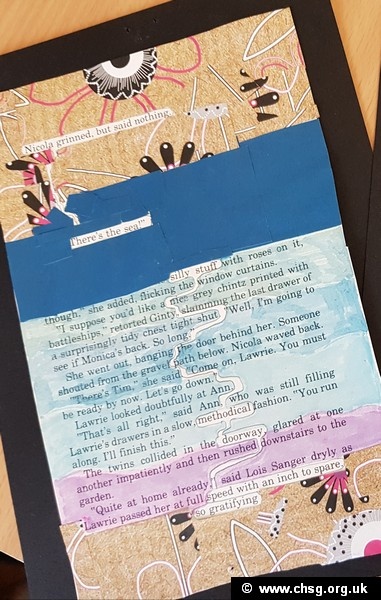 Nicola grinned, but said nothing.
There's the sea!"
silly stuff with roses on it,
though," she added, flicking the window curtains.
"I suppose you'd like a nice grey chintz printed with
battleships," retorted Ginty, slamming the last drawer of
a surprisingly tidy chest tight shut. Well, I'm going to
see if Monica's back. So long
She went out, banging the door behind her. Someone
shouted from the gravel path below. Nicola waved back.
"There's Tim," she said. "Come on, Lawrie. You must
be ready by now. Let's go down."
Lawrie looked doubtfully at Ann, who was still filling
Lawrie's drawers in a slow, methodical fashion. "You run
"That's all right," said Ann
along. I'll finish this."
The twins collided in the doorway, glared at one
another impatiently and then rushed downstairs to the
garden.
"Quite at home already," said Lois Sanger dryly as
Lawrie passed her at full speed with an inch to spare.
so gratifying
© www.chsg.org.uk